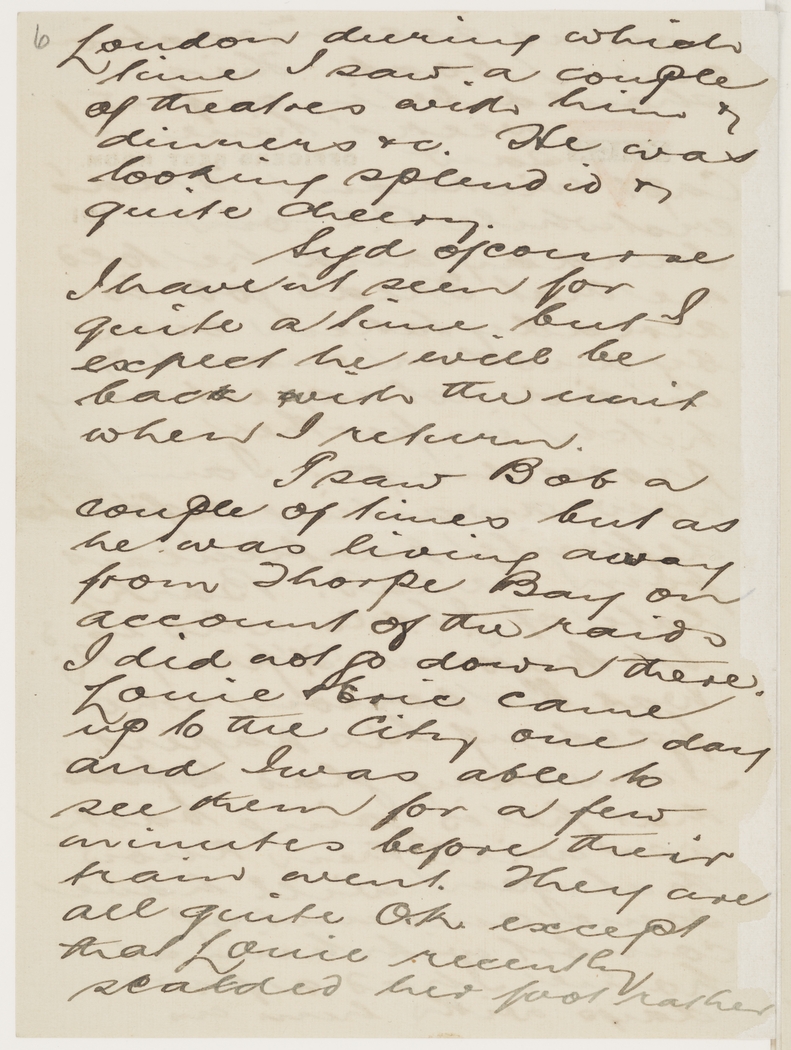 6
London during which
time I saw a couple
of theatres with him &
dinners &c. He was
looking splendid &
quite cheery.
Syd of course
I haven't seen for
quite a time but I
expect he will be
back with the unit
when I return.
I saw Bob a
couple of times but as
he was living away
from Thorpe Bay on
account of the raids
I did not go down there.
Louie & Eric came
up to the City one day
and I was able to
see them for a few
minutes before their
train went. They are
all quite O.K. except
that Louie recently
scalded her foot rather